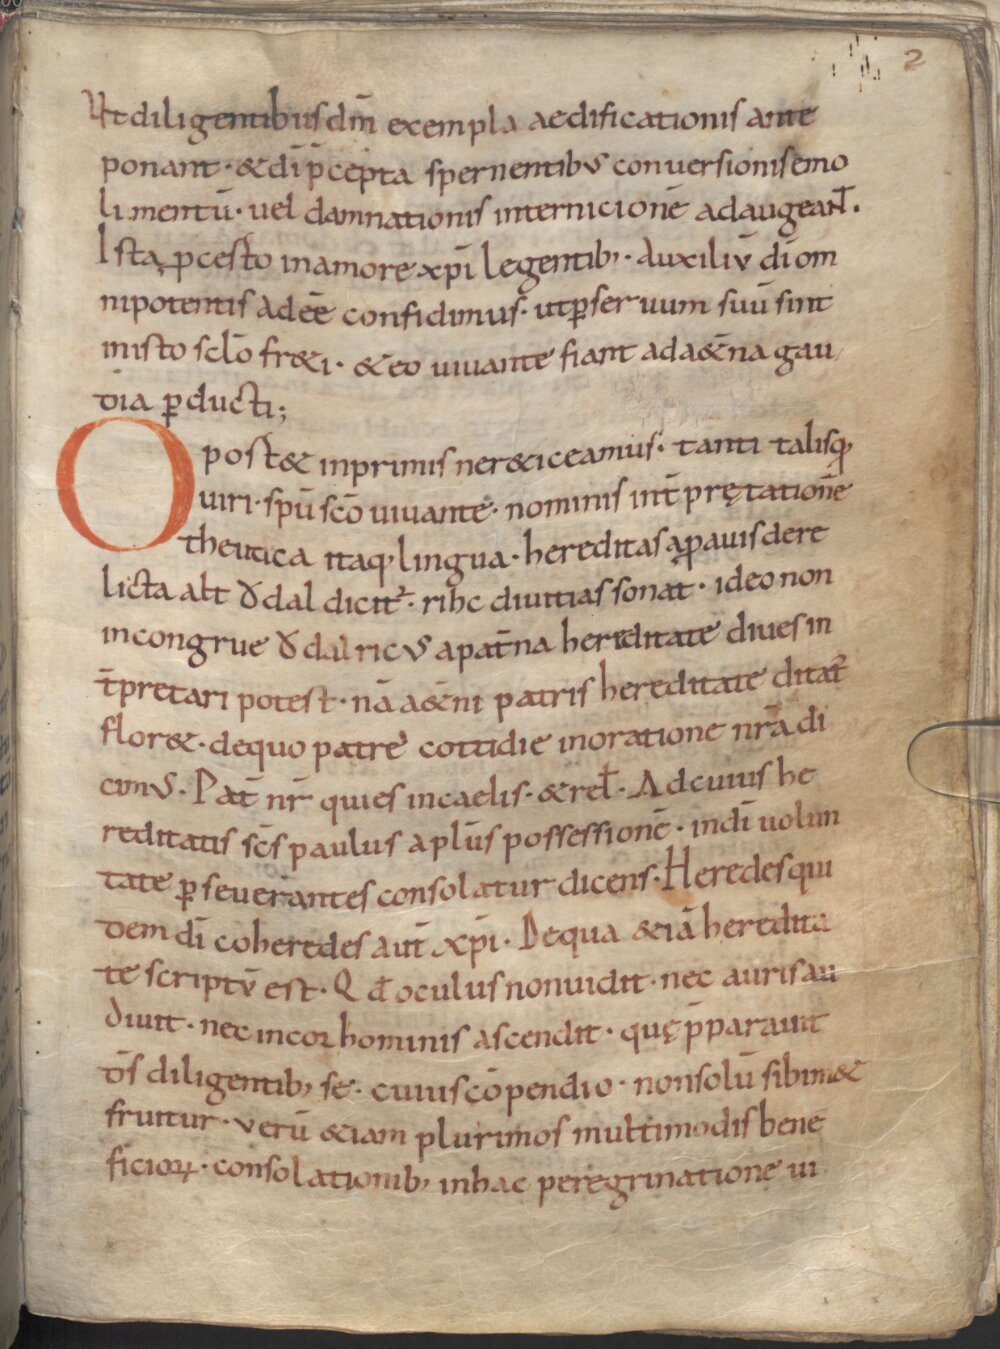 2
Ut diligentibus dm̄ exempla aedificationis ante
ponant · & dī p̄cepta spernentibus conversionis emo
limentū · uel damnationis internicionē adaugeant̄ .
Ista p̄cesto in amore xp̄i legentib; · Auxiliū dī om
nipotentis adeē confidimus · ut p̱ seruum suū sint
in isto sclō fr&i · & eo uiuante fiant ad a&̄na gau
dia p̱ducti;
Opost& inprimis ner&iceamus · tanti talisq;
uiri · spū scō uiuante · nominis int̄pretationē
theutica itaq; lingua · hereditas ꝓauis dere
licta alt ȣdal dicit᷑ · rihc diuitias sonat · ideo non
incongrue ȣdalricus a pat̄na hereditate diues in
t̄pretari potest · nā a&̄ni patris hereditate ditat᷑
flor& · de quo patre cottidie in oratione nr̄a di
cimus · Pat̄ nr̄ qui es in caelis · & rel̄ · Ad cuius he
reditatis scs̄ paulus aplūs possessionē · in dī uolun
tate p̱seuerantes consolatur dicens · Heredes qui
dem dī coheredes aut̄ xp̄i · De qua &iā heredita
te scriptū est · Qd̄ oculus non uidit · nec auris au
diuit · nec in cor hominis ascendit · quę p̄parauit
ds̄ diligentib; se · cuius cōpendio · non solū sibim&
fruitur · verū &iam plurimos multimodis bene
ficioꝝ · consolationib; in hac peregrinatione ui